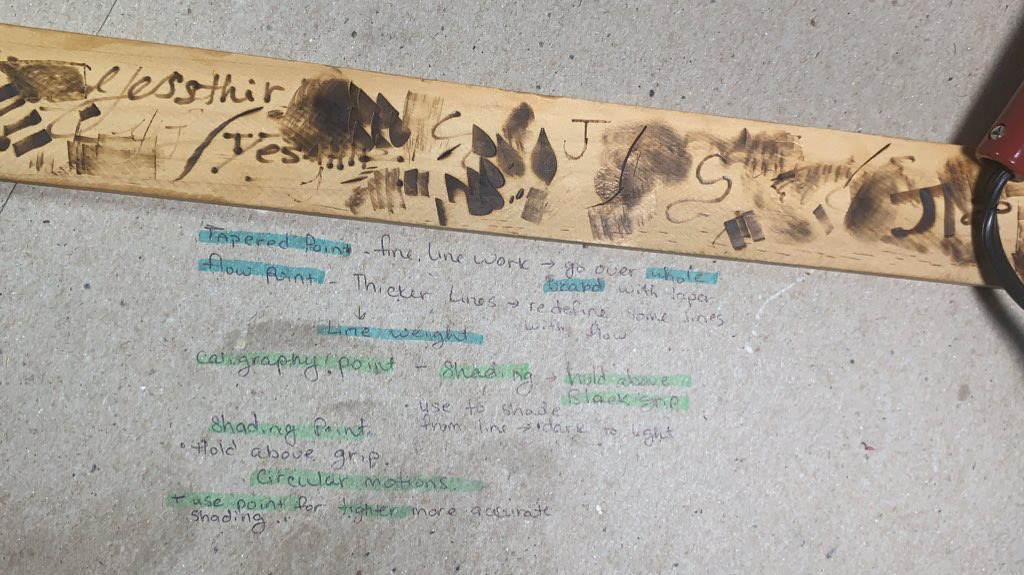 Yessthir
Yes
J
S
Tapered Point - fine line work → go over whole
board with taper
flow point - Thicker Lines → redefine some lines
with flow
↓
Line weight
Caligraphy point - Shading → hold above
Black grip
• use to shade
from line → dark to light
Shading Point
• Hold above grip.
Circular motions.
+ use point for tighter more accurate
shading..